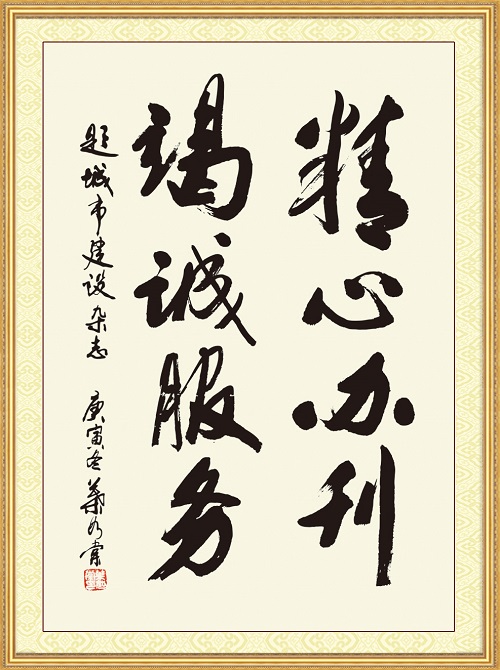 精心办刊
竭诚服务
题城市建设杂志 庚寅冬 叶如棠